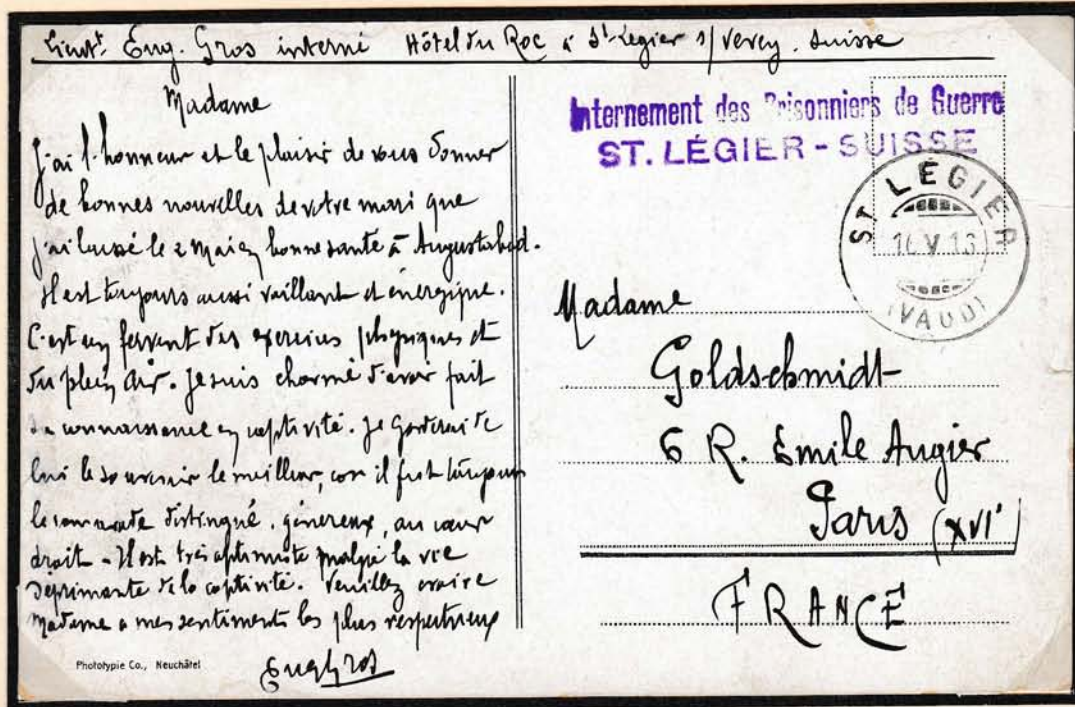 Lieut. Eug. Gros interné Hôtel du Roc à St Legier s/ Vevey. Suisse
Madame
J'ai l'honneur et le plaisir de vous donner
de bonnes nouvelles de votre mari que
j'ai laissé le 2 Mai en bonne santé à Augustabad.
Il est toujours aussi vaillant et énergique.
C'est un fervent des exercices physiques et
du plein air. Je suis charmé d'avoir fait
sa connaissance en captivité. Je garderai de
lui le souvenir le meilleur, car il fut toujours
le camarade distingué, généreux, au cœur
droit - Il est très optimiste malgré la vie
déprimante de la captivité. Veuillez croire
Madame a mes sentiments les plus respectueux
Eug Gros
Phototypie Co., Neuchâtel
Internement des Prisonniers de Guerre
ST. LÉGIER - SUISSE
ST LÉGIER
V.16
(VAUD)
Madame
Goldschmidt
6 R. Emile Augier
Paris (XVI'
FRANCE